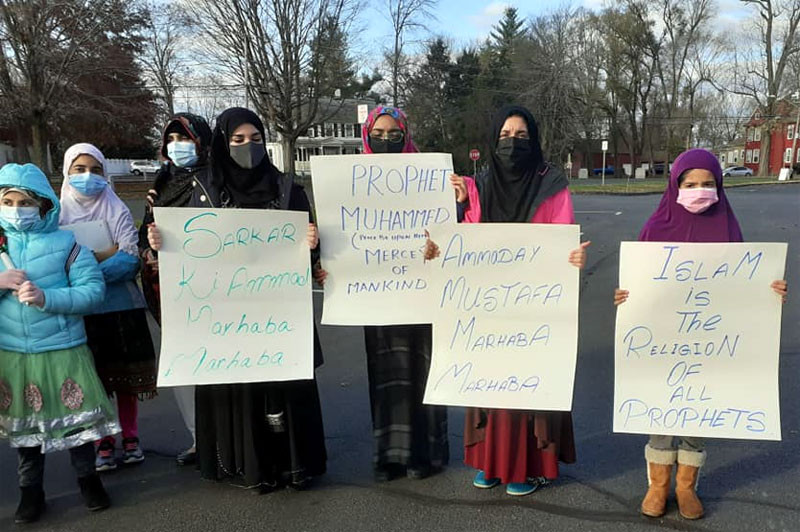 SARKAR
Ki Ammad
Marhaba
Marhaba.
PROPHET
MUHAMMED
(Peace Be Upon Him)
MERCEY
OF
MANKIND
AMMADAY
MUSTAFA
MARHABA
MARHABA.
ISLAM
is
The
RELIGION
OF
ALL
PROPHETS.